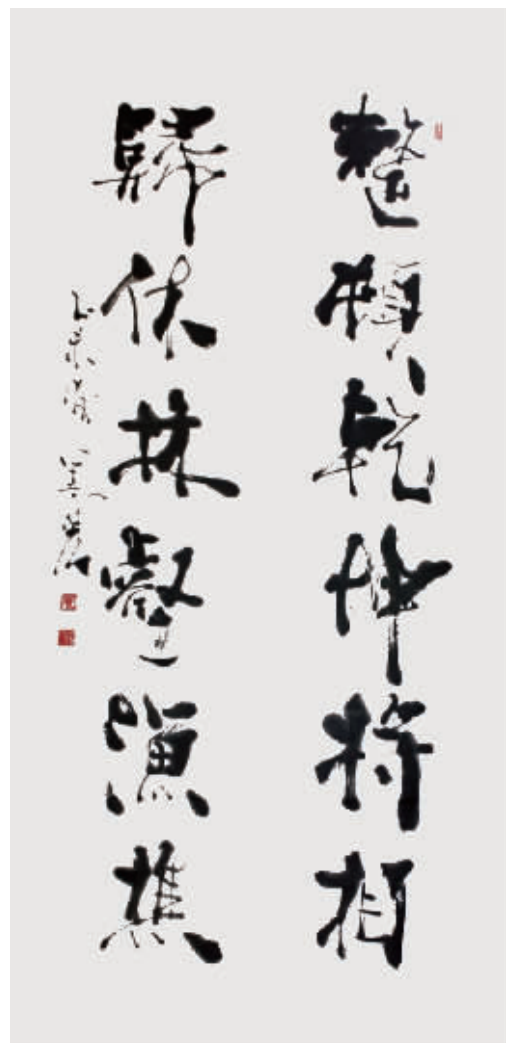 整頓乾坤將相
歸休林壑漁樵